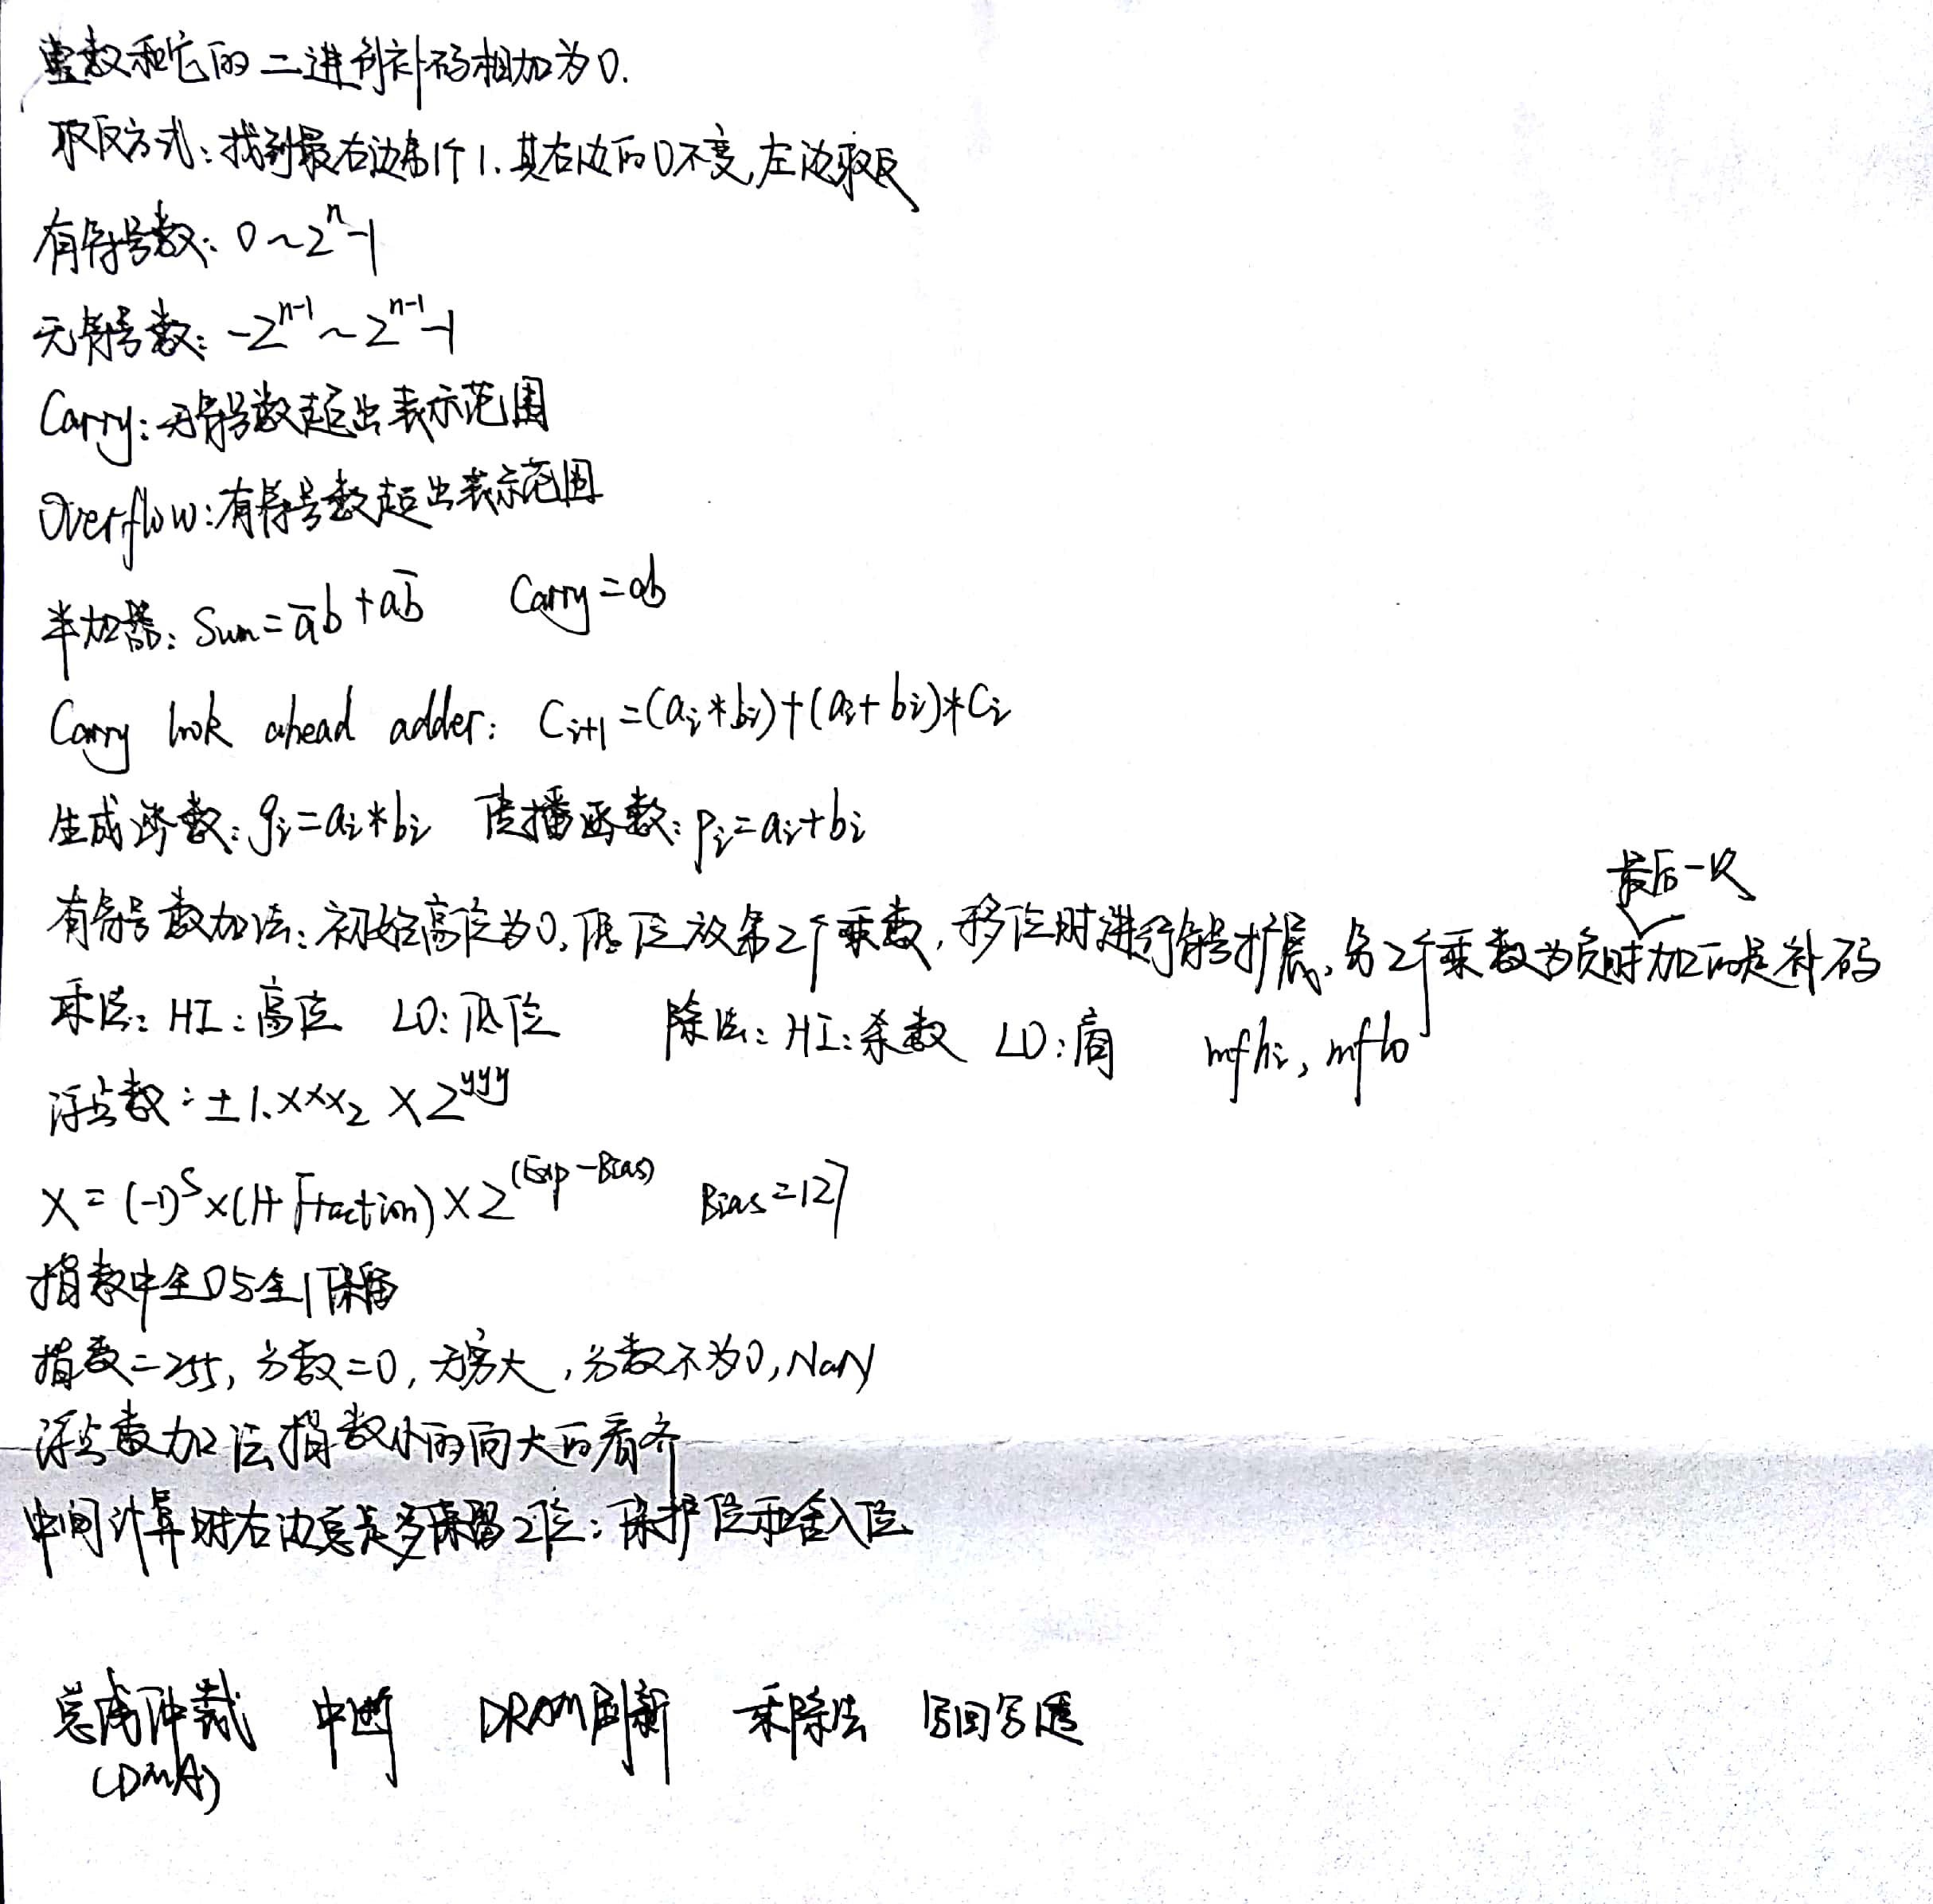 整数和它的二进制补码相加为0.
取反方式:找到最右边第1个1.其右边的0不变,左边取反
有符号数: 0~2^n-1
无符号数: -2^{n-1}~2^{n-1}-1
Carry:无符号数超出表示范围
Overflow:有符号数超出表示范围
半加器: Sum=a̅b+ab̅ Carry=ab
Carry look ahead adder: C_{i+1}=(a_i*b_i)+(a_i+b_i)*C_i
生成函数: g_i=a_i*b_i 传播函数: p_i=a_i+b_i
最后一次
有符号数加法:初始高位为0,低位放第2个乘数,移位时进行符号扩展,第2个乘数为负时加的是补码
乘法: HI:高位 LO:低位 除法: HI:余数 LO:商 mfhi, mflo
浮点数:±1.xxx_2 × 2^{yyy}
X=(-1)^S×(1+Fraction)×2^{(Exp-Bias)} Bias=127
指数中全0与全1保留
指数=255, 分数=0, 无穷大, 分数不为0, NaN
浮点数加法指数小的向大的看齐
中间计算时右边总是多保留2位:保护位和舍入位
总线仲裁 中断 DRAM刷新 乘除法 写回写透
(DMA)